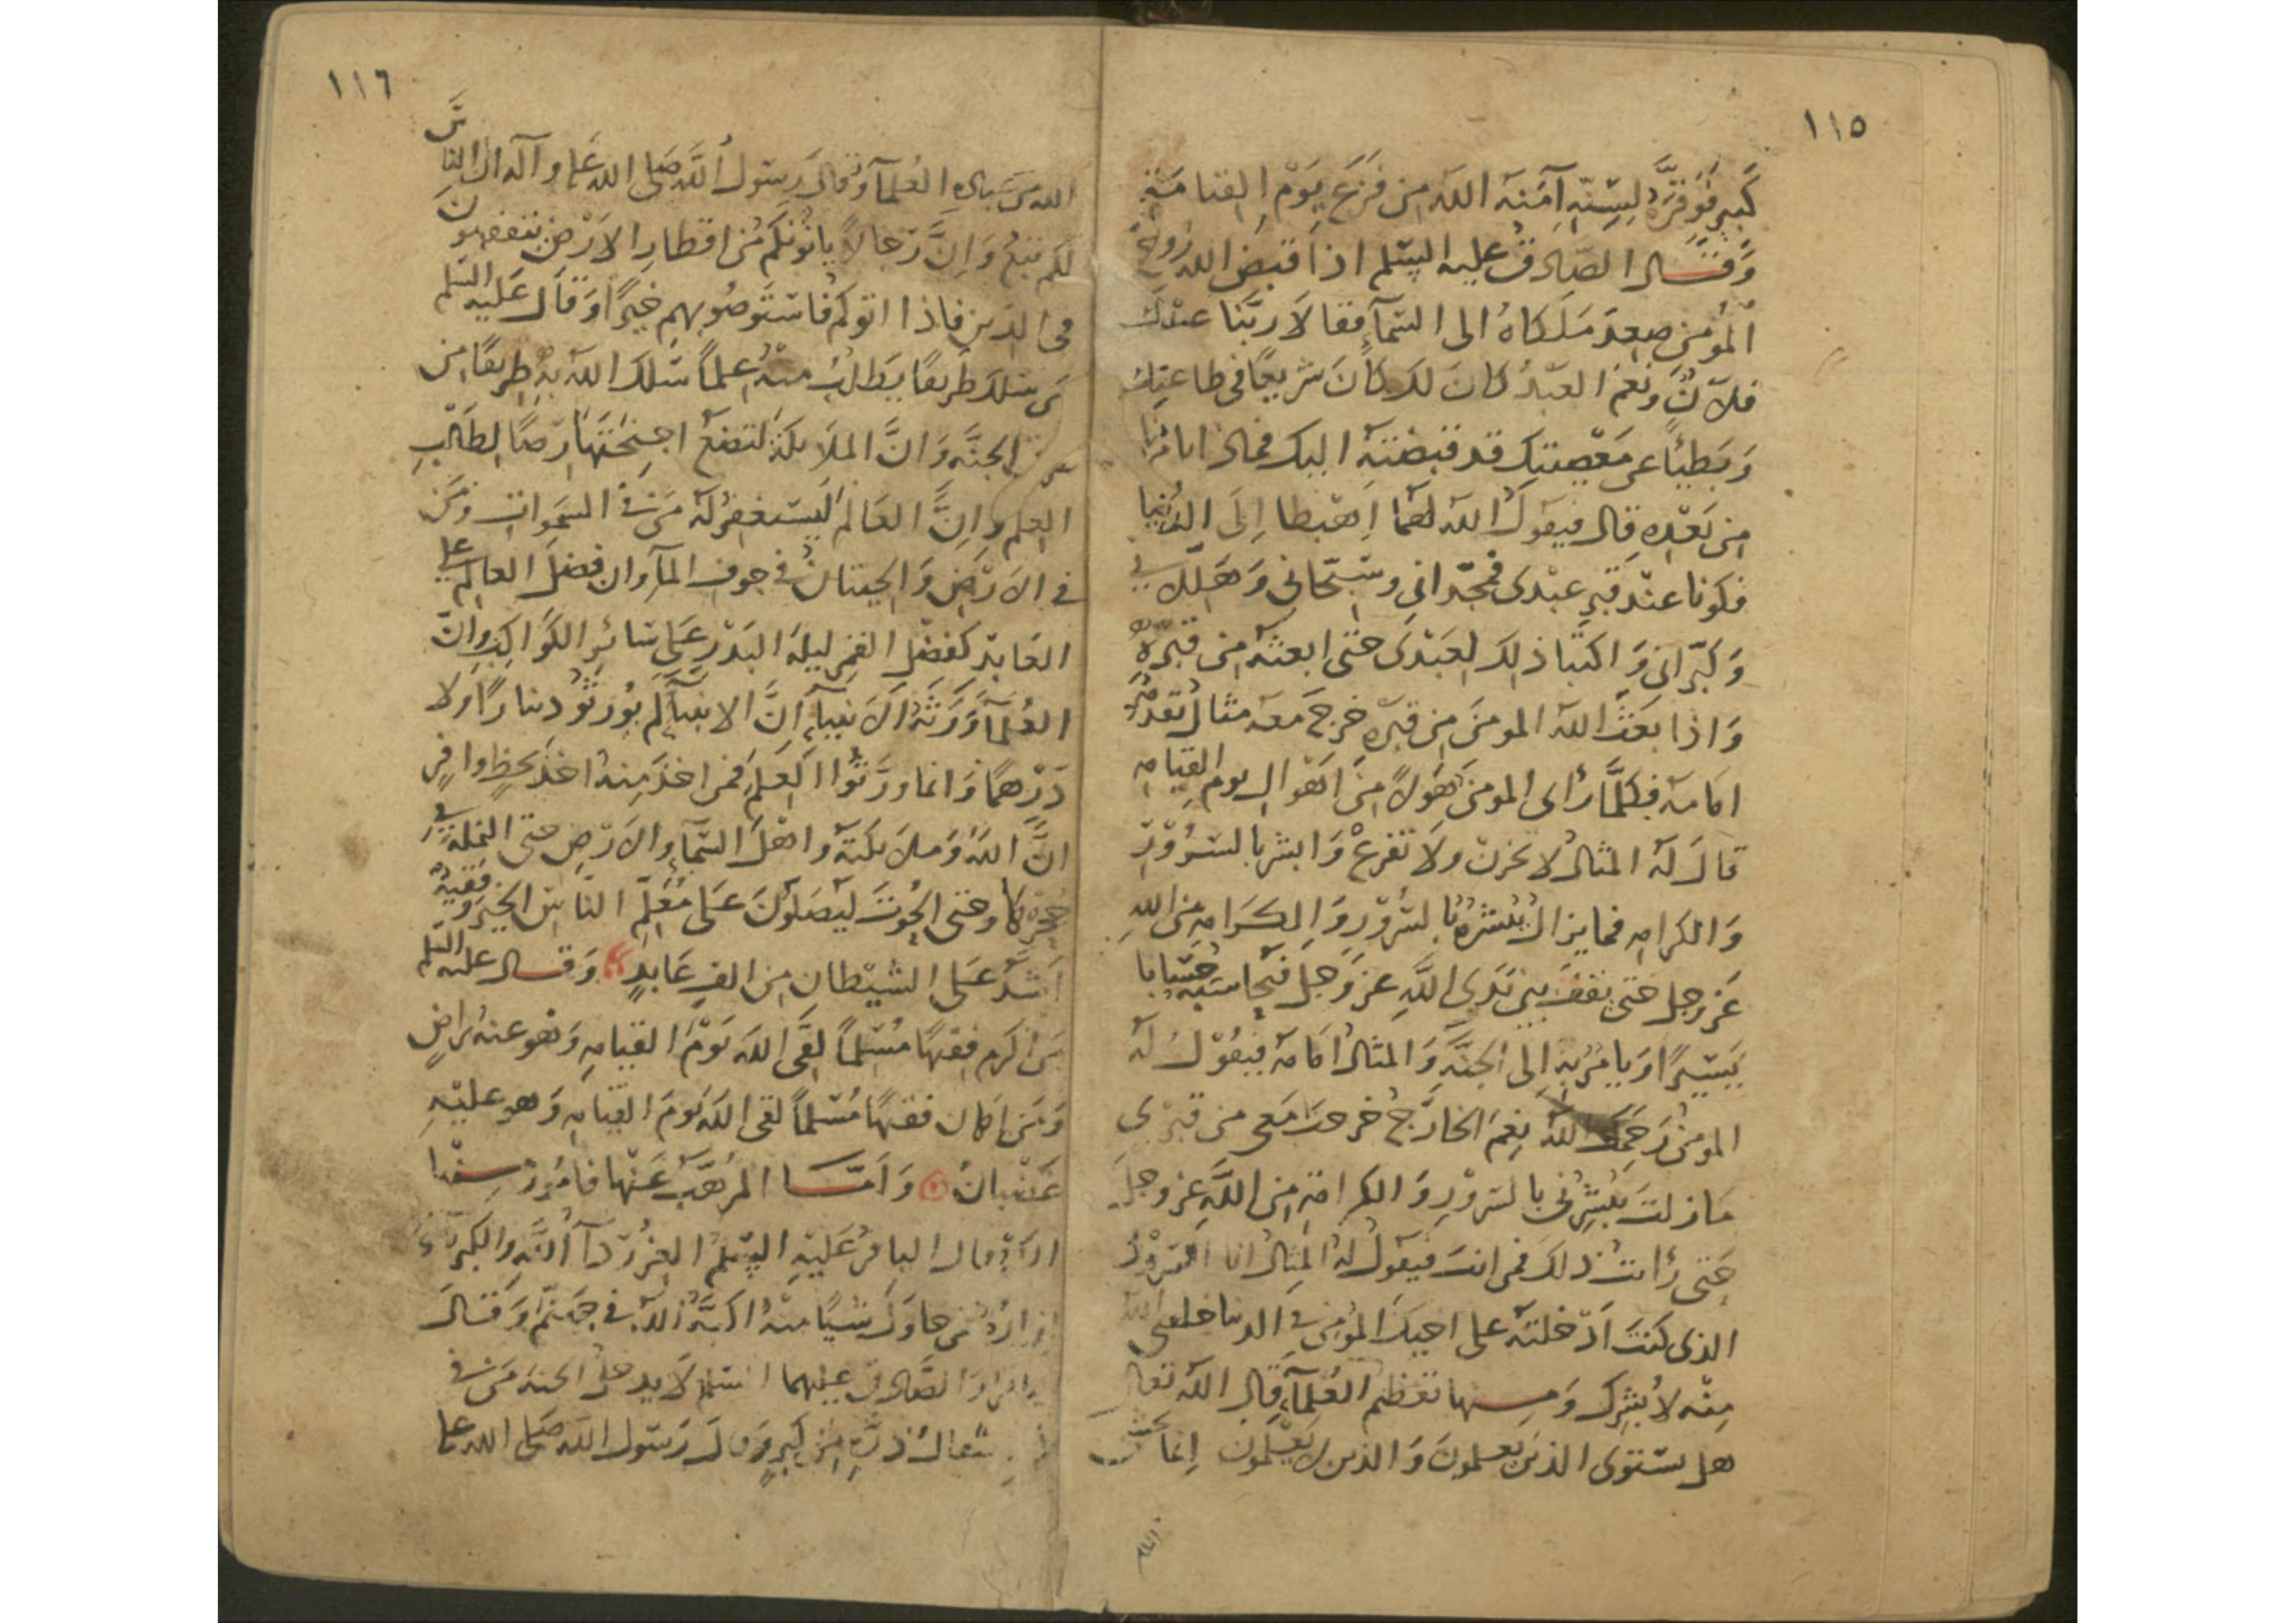 ١١٥
كَبير فَوَقَّرَهُ لِسِنِّهِ آمَنَهُ اللَّه مِن فَزَعِ يَوْمِ القيامَةِ
وَقَال الصّادِقُ عليه السّلم اذا قبضَ الله رُوحَ
المُؤمِن صعِدَ مَلَكاهُ الى السّمآءِ فقالا رَبَّنا عبْدكَ
فلانٌ ونعْمَ العبْدُ كانَ لكَ كانَ سَريعًا في طاعتِكَ
وَبَطيئًا عن مَعْصيتِكَ قد قبَضْتَهُ اليك فماذا تامُرُنا
مِن بَعْدِهِ قال فيقولُ اللَّه لهُما اِهْبطا اِلَى الدُّنيا
فكونا عنْدَ قبرِ عبْدى فمجّدانى وسَبّحانى وَهَلّلانى
وَكَبّرانى وَاكتبا ذلك لِعَبْدى حَتّى ابعثه مِن قبْرِهِ
وَاذا بَعَثَ اللَّه المومنَ مِن قبْرِهِ خرجَ معَه مثالٌ يَقْدُمُهُ
امَامَه فكلَّما رأى المومنُ هَوْلاً مِن اَهْوالِ يوم القيامه
قالَ لَه المثالُ لا تحْزن ولا تفزعْ وَابشر بالسّرُوْرِ
وَالكرامه فما يزالُ يُبَشّرُهُ بالسُّرُوْرِ وَالكَرَامهِ مِنَ اللهِ
عزّ وجل حتى يقفَ بين يَدَي اللَّهِ عزّ وَجلّ فيُحاسبُه حِسَابا
يَسِيْرًا وَيامُرُ بِه إلى الجنَّهِ وَالمثالُ امَامَه فيقُوْلُ لَه
المومنُ رَحمَكَ اللَّه نِعْمَ الخارِجُ خرجتَ مَعى من قبْرى
مَا زلتَ تُبَشّرُنى بالسّروْرِ وَالكرامَةِ مِن اللَّهِ عزّ وجلّ
حَتى رَأيتُ ذلكَ فمن انتَ فيَقولُ لهُ المِثالُ انا السّرُوْرُ
الذى كنتَ اَدْخلتَه على اخيكَ المؤمِن في الدنيا خلقنى اللَّه
مِنْه لاُبَشّرك وَمِنها تعْظيم العُلمآءِ قال اللَّه تعالى
هل يسْتوى الذينَ يعلمونَ وَالذين لا يَعْلمون اِنما يخشى
الله
١١٦
اللَّه مِن عبَادِهِ العُلمآءُ وَقالَ رسُولُ اللَّه صَلى الله علي وآله ان النّاسَ
لكم تبعٌ وَانَّ رجالاً ياتُونكم مِن اقطارِ الارْضِ يتفقهونَ
فى الدّين فاذا اتوكم فاسْتَوْصُوا بهم خيْرًا وَقالَ عَليْه السّلم
مَن سَلكَ طَريقًا يَطلُبُ منْه علمًا سَلكَ اللَّه بهِ طرِيقًا مِن
طرق الجنَّه وَانَّ الملائكة لتضعُ اجنِحَتهَا رِضًا لِطَالبِ
العِلم وَاِنَّ العَالمَ لَيَسْتغفِرُ لَه مَن فى السّموَاتِ ومَن
في الارَضِ وَالحيتانُ فى جوفِ الماءِ وان فضْلَ العالم على
العَابِد كفضْل القمَرِ ليلهَ البَدْر عَلى سَائِر الكوَاكبِ وَانَّ
العُلمَآءَ وَرَثهُ الانبيآءِ اِنَّ الانبيآءَ لم يُوَرّثُو دينارًا ولا
دِرْهمًا وَانما ورّثُوا العلمَ فمن اخذَ مِنهُ اخذَ بحَظٍ وافرٍ
انَّ اللهَ وَملائكتَه واهْلَ السّمآءِ والارْضِ حتى النملة في
جحرِها وحتى الحوتَ ليُصَلّونَ عَلى مُعَلّمِ النّاسِ الخيْرَ وفَقيهٌ
اَشدُّ عَلى الشيْطانِ مِن الفِ عَابدٍ وَقال عليه السّلم
مَن اكرم فقيهًا مُسْلمًا لقَى اللَّه يَوْمَ القيامهِ وَهُو عنهُ راضٍ
وَمَن اهان فقيهًا مُسْلمًا لقى اللَّه يَومَ القيامه وَهو عليْهِ
غَضْبانُ وَاَمَّا المرُهَّب عَنْها فامُورٌ منها
قال الباقرُ عَليْهِ السّلمُ العِزُّ ردآءُ اللَّه والكبريآءُ
ازارُهُ فمن حاوَلَ شيًا منْهُ اكبَّهُ اللَّه فى جهَنّمَ وَقالَ
الباقرُ وَالصّادق عليهما السّلم لا يدخلُ الجنه مَن في
مثقالُ ذرَّةٍ مِن كِبرٍ وَقالَ رَسول اللَّه صَلى الله علي